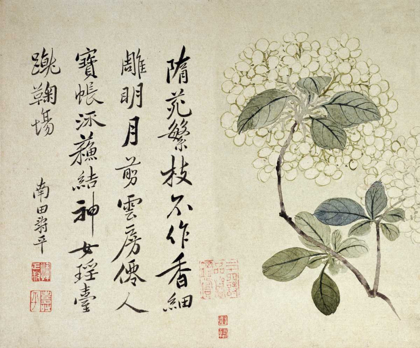 隋苑繁枝不作香細
雕明月剪雲房僊人
寶帳流蘓結神女瑤臺
鞠場
南田壽平